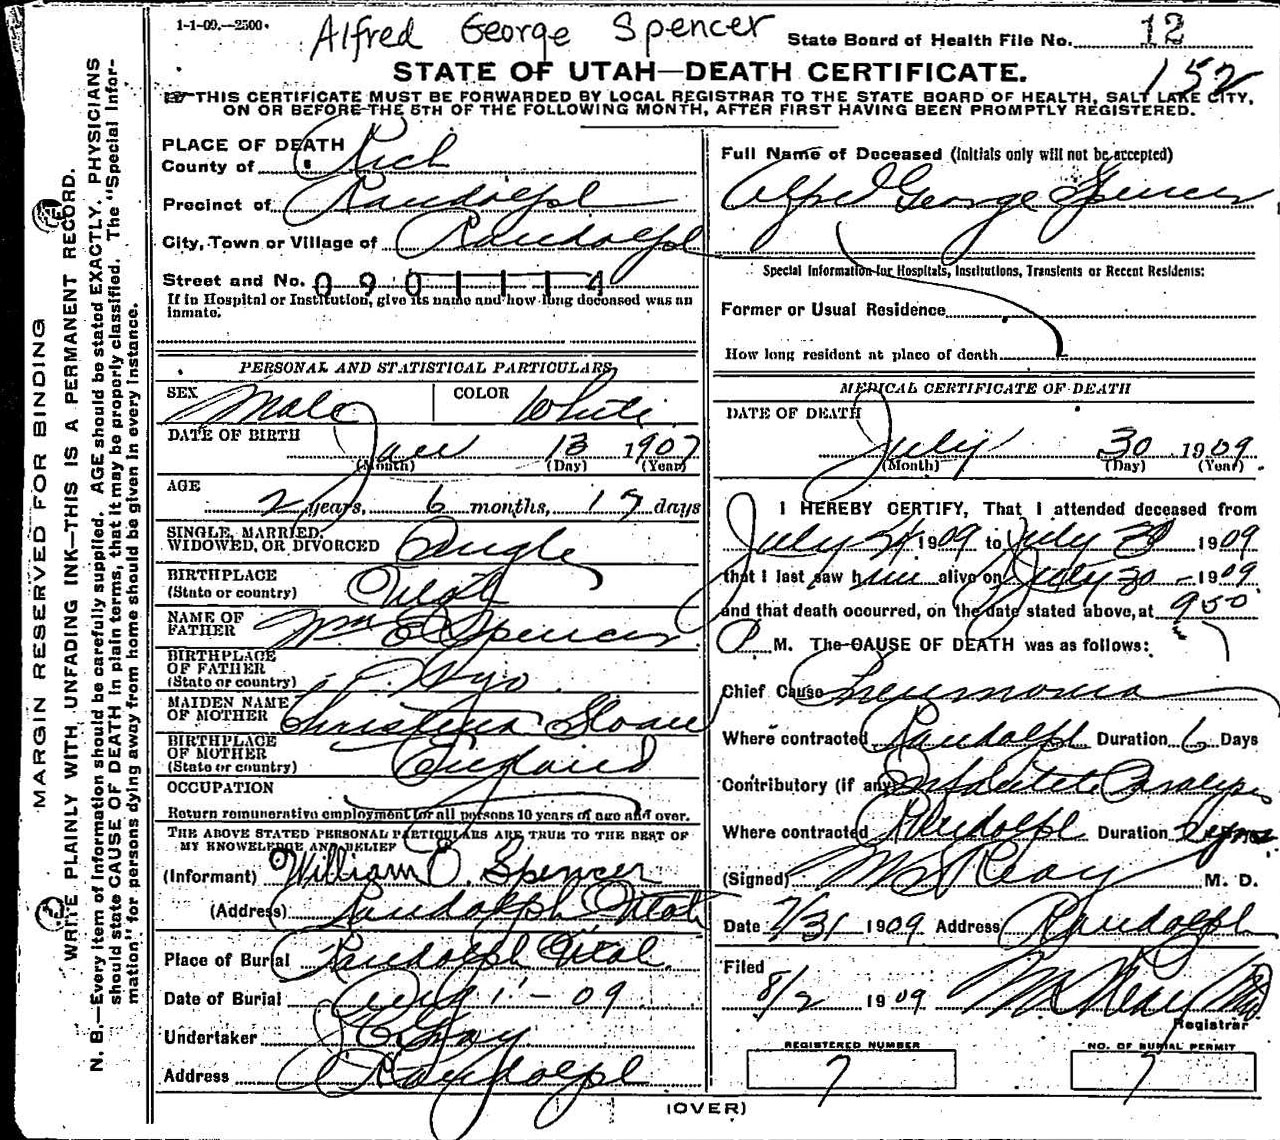 1-1-09.—2500.
Alfred George Spencer
State Board of Health File No. 12
152
STATE OF UTAH—DEATH CERTIFICATE.
THIS CERTIFICATE MUST BE FORWARDED BY LOCAL REGISTRAR TO THE STATE BOARD OF HEALTH, SALT LAKE CITY,
ON OR BEFORE THE 5TH OF THE FOLLOWING MONTH, AFTER FIRST HAVING BEEN PROMPTLY REGISTERED.
MARGIN RESERVED FOR BINDING
WRITE PLAINLY WITH UNFADING INK—THIS IS A PERMANENT RECORD.
N. B.—Every item of information should be carefully supplied. AGE should be stated EXACTLY. PHYSICIANS
should state CAUSE OF DEATH in plain terms, that it may be properly classified. The "Special Infor-
mation" for persons dying away from home should be given in every instance.
PLACE OF DEATH
County of Rich
Precinct of Randolph
City, Town or Village of Randolph
Street and No. 0901114
If in Hospital or Institution, give its name and how long deceased was an
inmate.
PERSONAL AND STATISTICAL PARTICULARS
SEX Male COLOR White
DATE OF BIRTH Jan 13 1907
(Month) (Day) (Year)
AGE
2 years, 6 months, 17 days
SINGLE, MARRIED,
WIDOWED, OR DIVORCED Single
BIRTHPLACE
(State or country) Utah
NAME OF
FATHER Wm E Spencer
BIRTHPLACE
OF FATHER
(State or country) Wyo
MAIDEN NAME
OF MOTHER Christena Sloan
BIRTHPLACE
OF MOTHER
(State or country)
OCCUPATION
Return remunerative employment for all persons 10 years of age and over.
THE ABOVE STATED PERSONAL PARTICULARS ARE TRUE TO THE BEST OF
MY KNOWLEDGE AND BELIEF
(Informant) William E. Spencer
(Address) Randolph Utah
Place of Burial Randolph Utah.
Date of Burial Aug 1 - 09
Undertaker
Address Randolph
Full Name of Deceased (Initials only will not be accepted)
Alfred George Spencer
Special Information for Hospitals, Institutions, Transients or Recent Residents:
Former or Usual Residence
How long resident at place of death
MEDICAL CERTIFICATE OF DEATH
DATE OF DEATH
July 30 1909
(Month) (Day) (Year)
I HEREBY CERTIFY, That I attended deceased from
July 24 1909 to July 30 1909
that I last saw him alive on July 30 - 1909
and that death occurred, on the date stated above, at 950
P M. The CAUSE OF DEATH was as follows:
Chief Cause Pneumonia
Where contracted Randolph Duration 6 Days
Contributory (if any) Infantile Paralysis
Where contracted Randolph Duration 2 yrs
(Signed) M. D.
Date 7/31 1909 Address Randolph
Filed
8/2 1909
Registrar
REGISTERED NUMBER
7
NO. OF BURIAL PERMIT
7
(OVER)